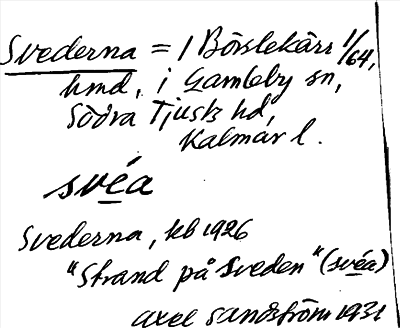 Svederna = 1 Börslekärr 1/64,
hmd, i Gamleby sn,
Södra Tjusts hd,
Kalmar l.
svéa
Svederna, kb 1926
"Strand på Sveden" (svéa)
Axel Sandström 1931